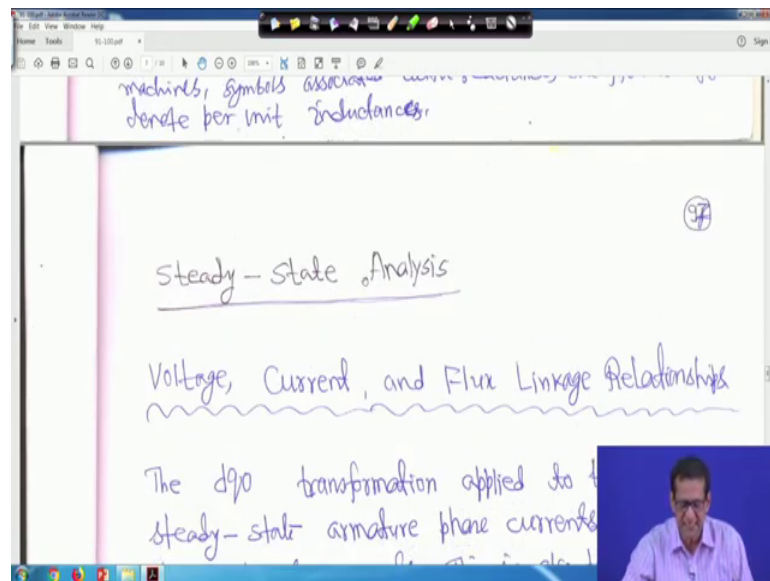 91-100.pdf - Adobe Acrobat Reader DC
File Edit View Window Help
Home Tools 91-100.pdf × Sign
machines, symbols associated
denote per unit inductances.
97
Steady-State Analysis
Voltage, Current, and Flux Linkage Relationships
The dq0 transformation applied to
steady-state armature phase currents